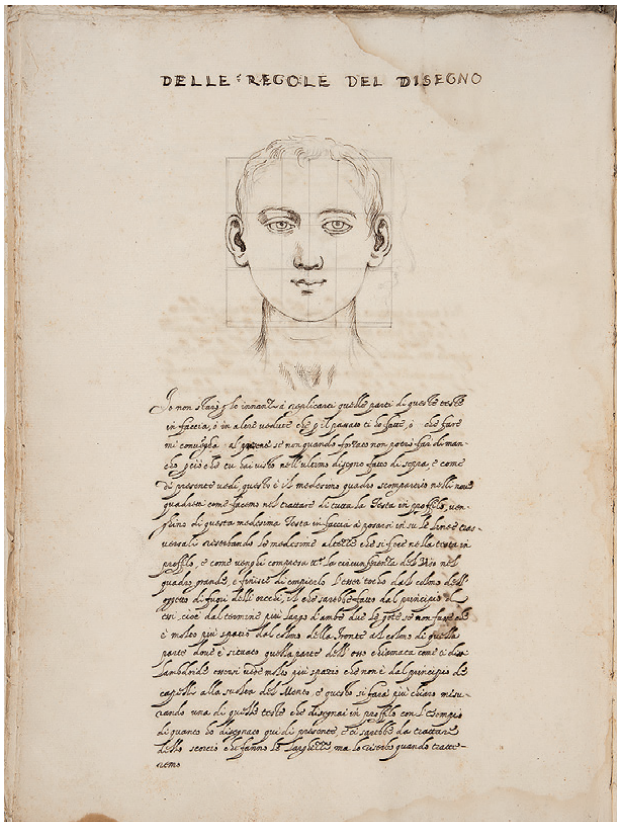 DELLE REGOLE DEL DISEGNO
Io non starò per innanzi à replicarti quelle parti di queste teste
in faccia, ò in altre vedute che per il passato ti ho fatte, ò che fare
mi convenga se non quando forzato non potrò far di man-
co, perciò che tu hai visto nell'ultimo disegno fatto di sopra, e come
di presente vedi, questo è il medesimo quadro scompartito nelli nove
quadretti come facemo nel trattare di tutta la Testa in profilo, ven-
ghino di questa medesima Testa in faccia à posarsi in su le linee tras-
versali riserbando le medesime altezze che si fece nella testa in
profilo, e come venghi compresa la circunferenza del Viso nel
quadro grande, e finisce di empierlo l'esser tocho dal colmo dell'
di fuori delli orecchi, il che sarebbe fatto dal principio
cioè dal termine più largo d'ambe due le gote se non fusse che
è molto più spazio dal colmo della fronte al colmo di quella
parte dove è situato quella parte dell' osso chiamata come ti dissi
lambdoide essersi vede molto più spazio che non è dal principio de
capelli alla del Mento, e questo si farà più chiaro misu-
rando una di quelle teste che disegnai in profilo con l'esempio
di quanto ho disegnato qui di presente, e ci sarebbe da trattare
dello scorcio che fanno le larghezze, ma lo riserbo quando tratte-
remo